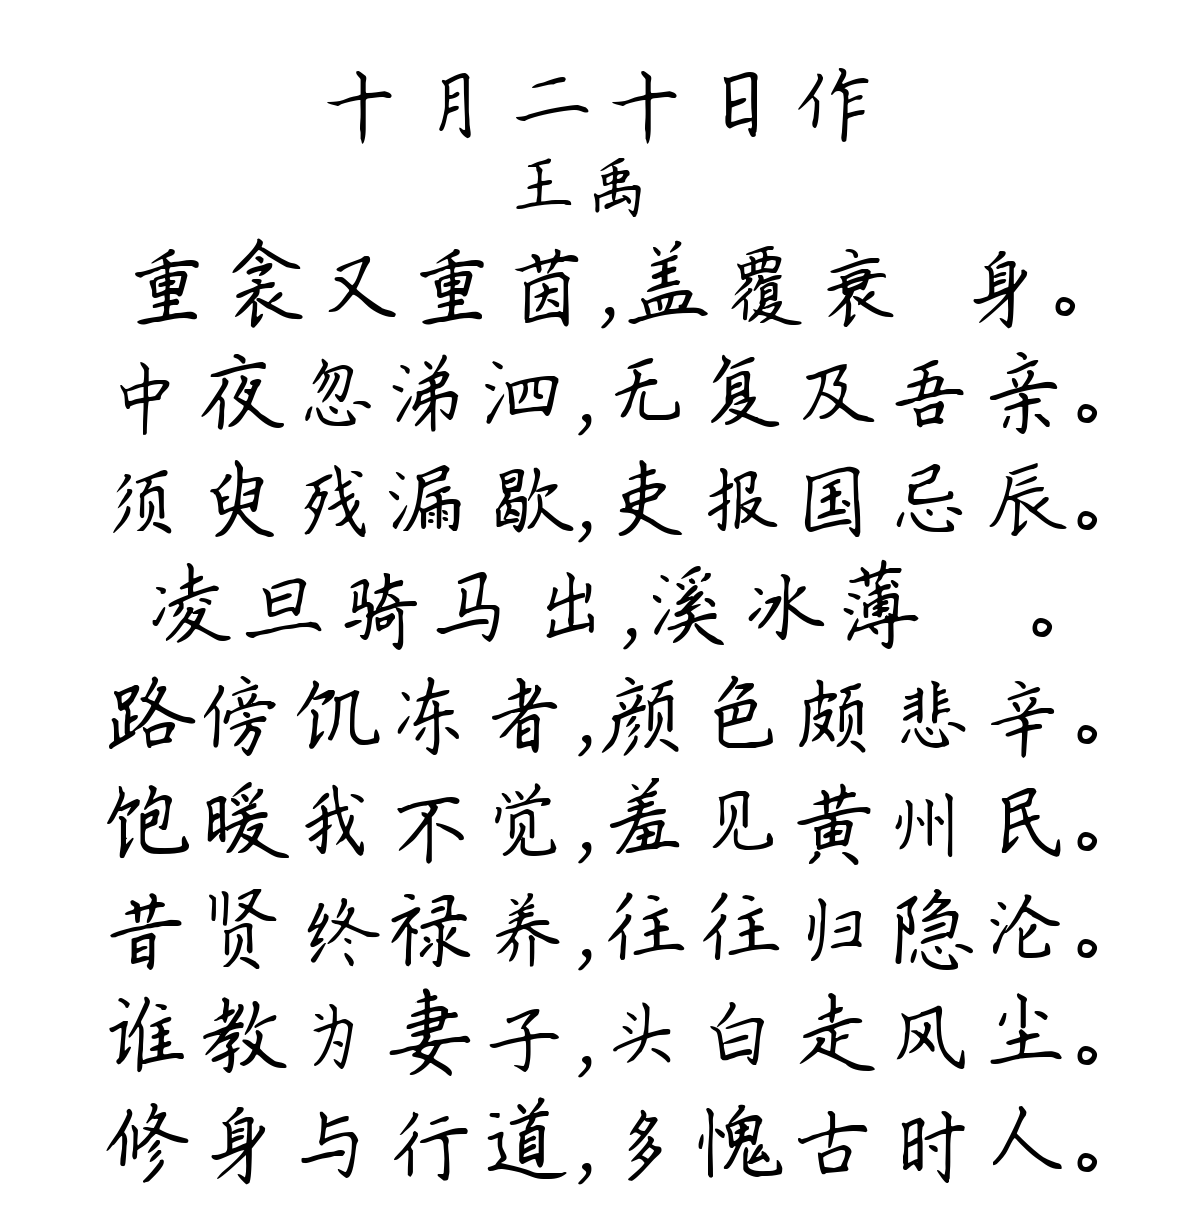 十月二十日作
王禹
重衾又重茵,盖覆衰 身。
中夜忽涕泗,无复及吾亲。
须臾残漏歇,吏报国忌辰。
凌旦骑马出,溪冰薄 。
路傍饥冻者,颜色颇悲辛。
饱暖我不觉,羞见黄州民。
昔贤终禄养,往往归隐沦。
谁教为妻子,头白走风尘。
修身与行道,多愧古时人。